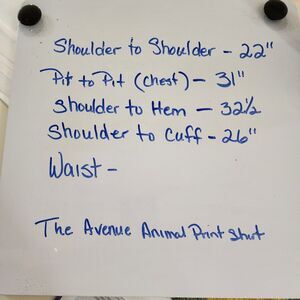 Shoulder to Shoulder - 22"
Pit to Pit (chest) - 31"
Shoulder to Hem - 32½
Shoulder to Cuff - 26"
Waist -
The Avenue Animal Print Shirt